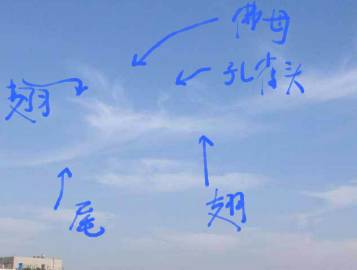 佛母
孔雀头
翅
尾
翅